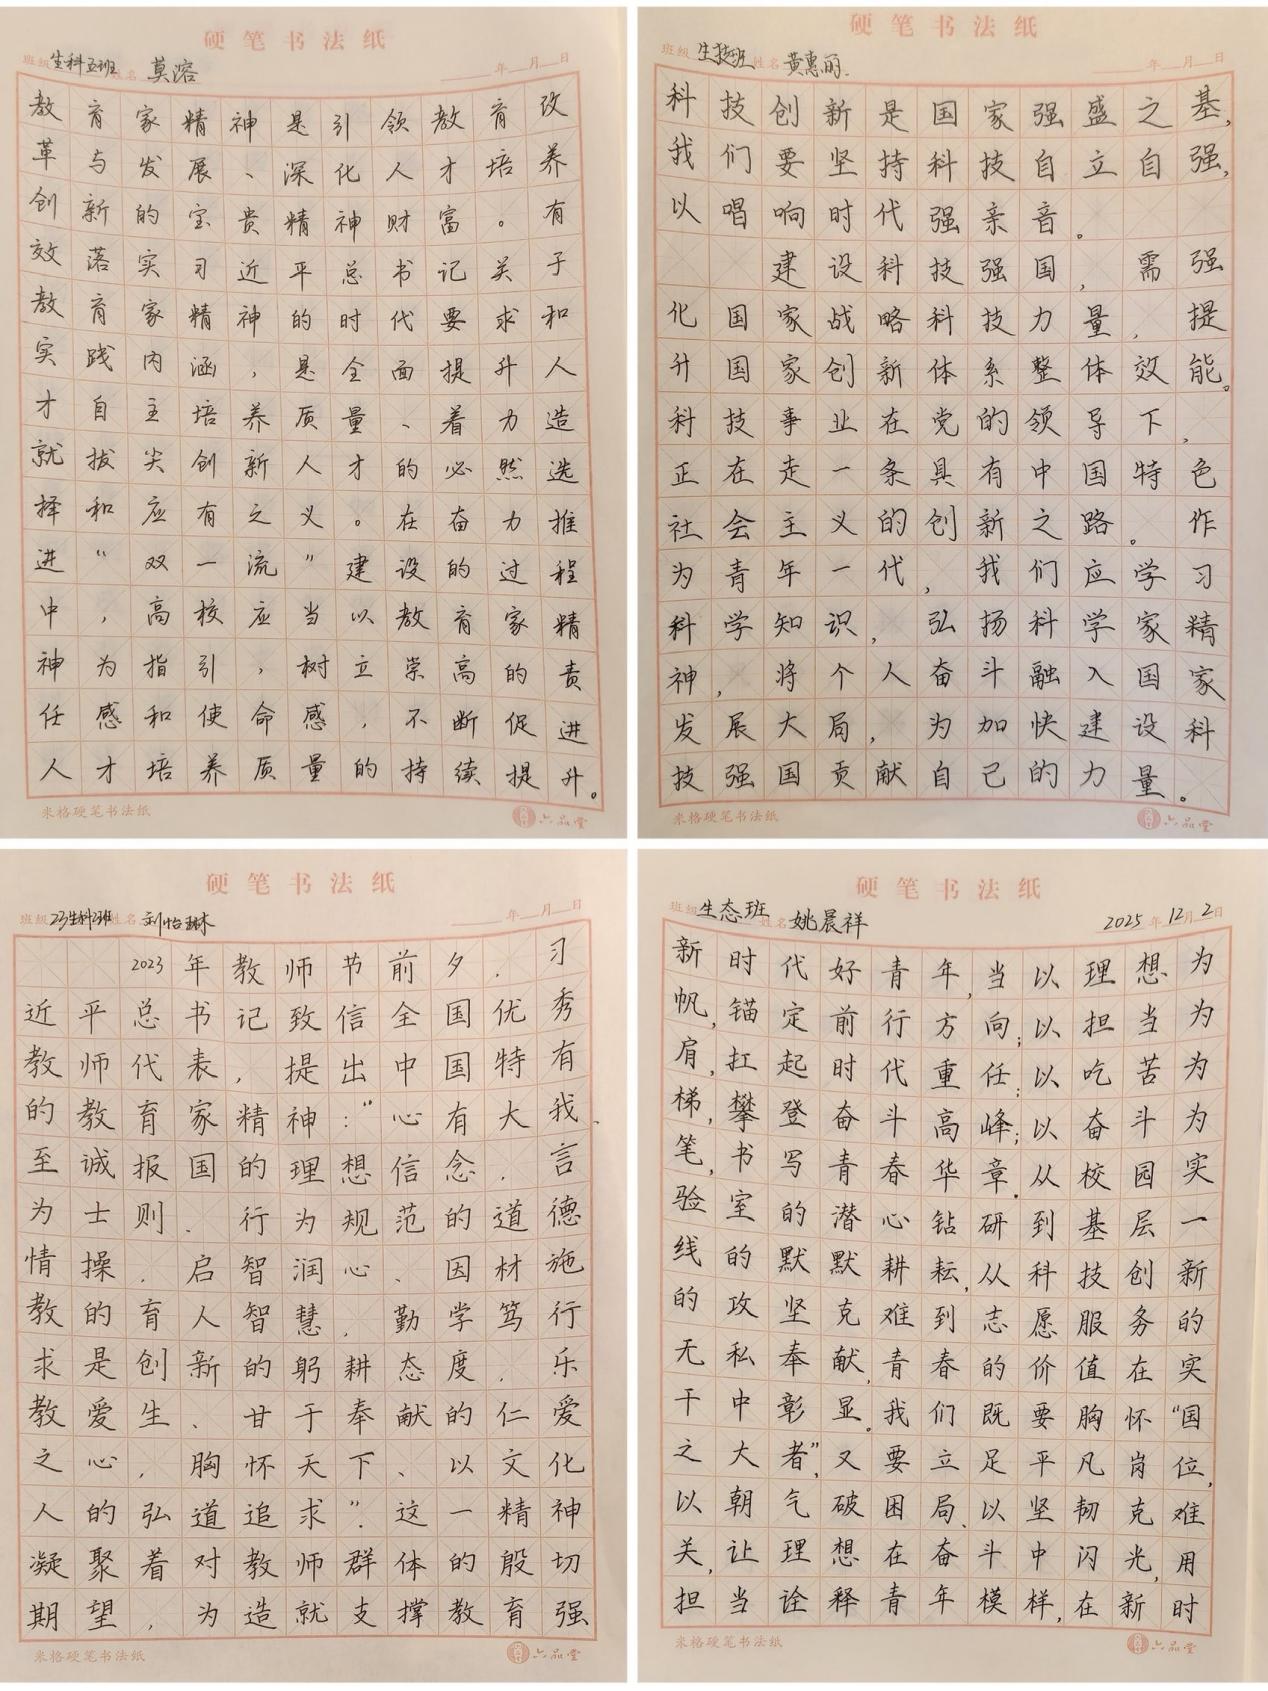 硬笔书法纸
班级 生科五班 姓名 莫溶 年 月 日
教育家精神是引领教育改
革与发展、深化人才培养
创新的宝贵精神财富。有
效落实习近平总书记关于
教育家精神的时代要求和
实践内涵，是全面提升人
才自主培养质量、着力造
就拔尖创新人才的必然选
择和应有之义。在奋力推
进“双一流”建设的过程
中，高校应当以教育家精
神为指引，树立崇高的责
任感和使命感，不断促进
人才培养质量的持续提升。
米格硬笔书法纸 六品堂
硬笔书法纸
班级 生技班 姓名 黄惠丽 年 月 日
科技创新是国家强盛之基,
我们要坚持科技自立自强,
以唱响时代强亲音。
建设科技强国，需强
化国家战略科技力量，提
升国家创新体系整体效能。
科技事业在党的领导下，
正在走一条具有中国特色
社会主义的创新之路。作
为青年一代，我们应学习
科学知识，弘扬科学家精
神，将个人奋斗融入国家
发展大局，为加快建设科
技强国贡献自己的力量。
米格硬笔书法纸 六品堂
硬笔书法纸
班级 23生科2班 姓名 刘怡琳 年 月 日
2023年教师节前夕，习
近平总书记致信全国优秀
教师代表，提出中国特有
的教育家精神：“心有大我
至诚报国的理想信念，言
为士则、行为规范的道德
情操，启智润心、因材施
教的育人智慧，勤学笃行
求是创新的躬耕态度，乐
教爱生、甘于奉献的仁爱
之心，胸怀天下、以文化
人的弘道追求”。这一精神
凝聚着对教师群体的殷切
期望，为造就支撑教育强
米格硬笔书法纸 六品堂
硬笔书法纸
班级 生态班 姓名 姚晨祥 2025年12月2日
新时代好青年,当以理想为
帆,锚定前行方向;以担当为
肩,扛起时代重任;以吃苦为
梯,攀登奋斗高峰;以奋斗为
笔,书写青春华章.从校园实
验室的潜心钻研到基层一
线的默默耕耘,从科技创新
的攻坚克难到志愿服务的
无私奉献,青春的价值在实
干中彰显。我们既要胸怀“国
之大者”,又要立足平凡岗位,
以朝气破困局、以坚韧克难
关,让理想在奋斗中闪光,用
担当诠释青年模样,在新时
米格硬笔书法纸 六品堂